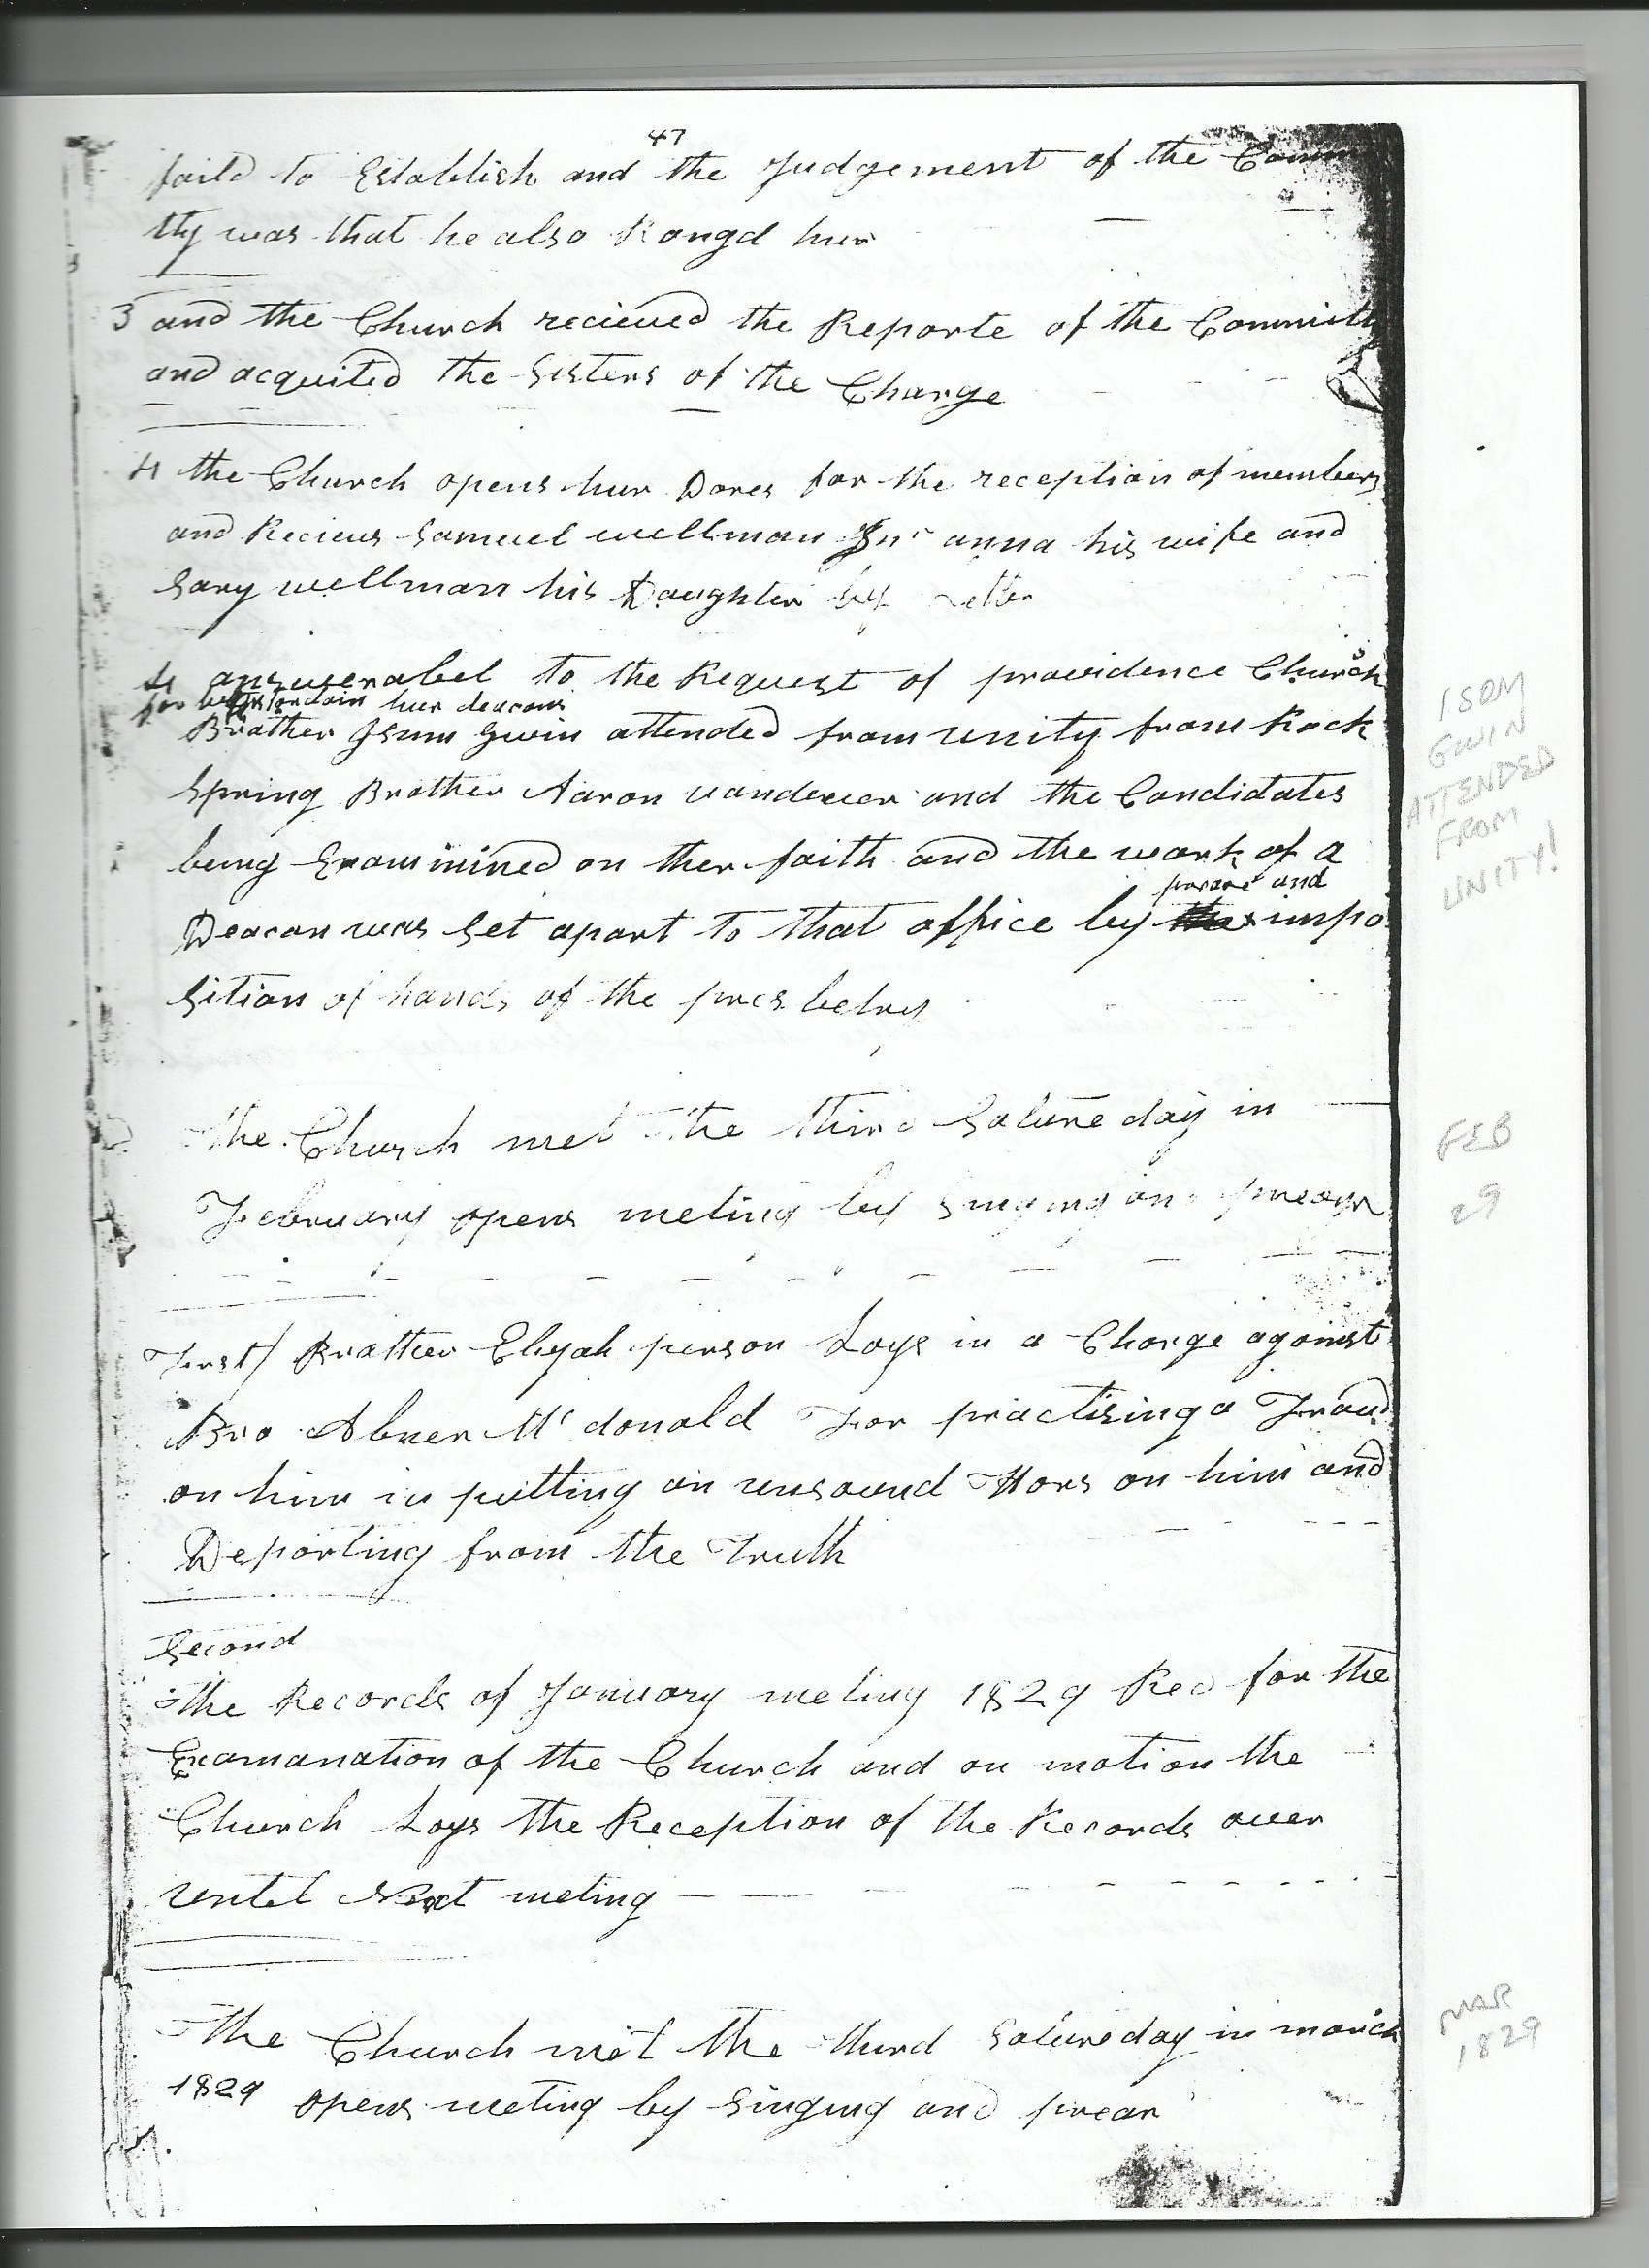 47
faild to Establish and the Judgement of the Comm
tty was that he also Rongd hur
3 and the Church recieved the Reporte of the Committy
and acquited the Sisters of the Charge
4 the Church opens hur Dores for the reception of members
and Recieus Samuel wellman Snr anna his wife and
Sary wellman his Daughter by Letter
4 answerabel to the Request of providence Church
for to ordain hur deacons
Brother Isum Gwin attended from unity from Rock
Spring Brother Aaron vandever and the Candidates
being Examinined on ther faith and the work of a
prear and
Deacon was Set apart to that office by impo
Sition of hands of the presbetry
the Church met the third Satureday in
February opens meting by Singing and prear
First/ Brother Elijah person Lays in a Charge against
Bro Abner Mcdonald For practising a Fraud
on him in putting an unsound Hors on him and
Departing from the Truth
Second
the Records of January meting 1829 Red for the
Examanation of the Church and on motion the
Church Lays the Reception of the Records over
untel Next meting
The Church met the third Satureday in march
1829 opens meting by Singing and prear
ISOM
GWIN
ATTENDED
FROM
UNITY!
FEB
29
MAR
1829